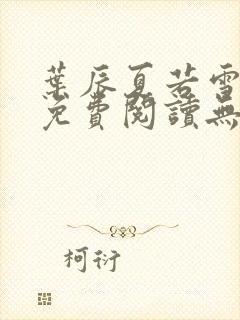 葉辰夏若雪
免費閱讀無
柯衍